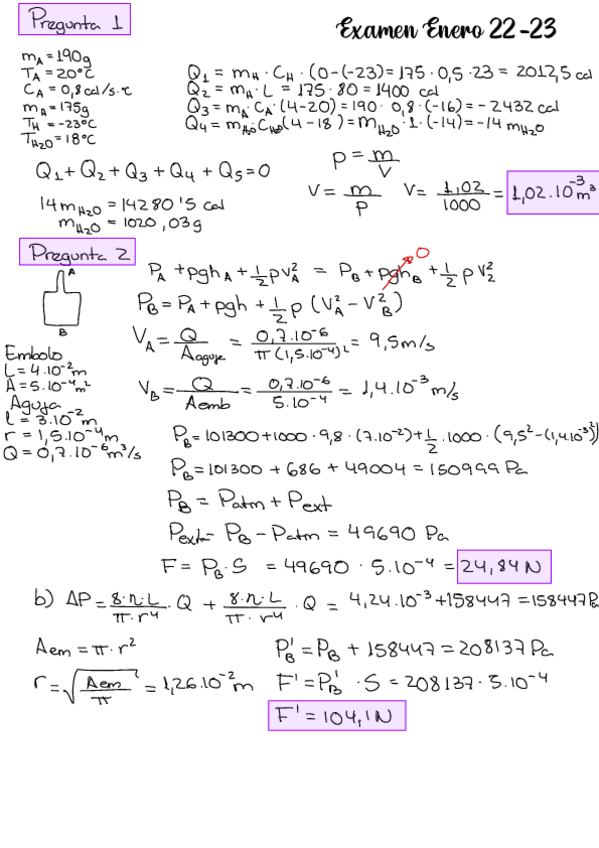 Pregunta 1
Examen Enero 22-23
m_A = 190g
T_A = 20°C
C_A = 0,8 cal/s·°C
m_A = 175g
T_H = -23°C
T_H2O = 18°C
Q1 = m_H · C_H · (0-(-23)) = 175 · 0,5 · 23 = 2012,5 cal
Q2 = m_A · L = 175 · 80 = 1400 cal
Q3 = m_A · C_A · (4-20) = 190 · 0,8 · (-16) = -2432 cal
Q4 = m_H2O C_H2O (4-18) = m_H2O · 1 · (-14) = -14 m_H2O
Q1 + Q2 + Q3 + Q4 + Q5 = 0
14 m_H2O = 14280'5 cal
m_H2O = 1020,03 g
p = m/V
V = m/p V = 1,02/1000 = 1,02·10^-3 m³
Pregunta 2
A
B
P_A + pgh_A + 1/2 p v_A² = P_B + pgh_B + 1/2 p v_2²
0
P_B = P_A + pgh + 1/2 p (V_A² - V_B²)
V_A = Q/A_aguja = 0,7·10^-6/π(1,5·10^-4)² = 9,5 m/s
V_B = Q/A_emb = 0,7·10^-6/5·10^-4 = 1,4·10^-3 m/s
Embolo
L = 4·10^-2 m
A = 5·10^-4 m²
Aguja
l = 3·10^-2 m
r = 1,5·10^-4 m
Q = 0,7·10^-6 m³/s
P_B = 101300 + 1000 · 9,8 · (7·10^-2) + 1/2 · 1000 · (9,5² - (1,4·10^-3)²)
P_B = 101300 + 686 + 49004 = 150999 Pa
P_B = P_atm + P_ext
P_ext = P_B - P_atm = 49690 Pa
F = P_B · S = 49690 · 5·10^-4 = 24,84 N
b) ΔP = 8·n·L/π·r⁴ · Q + 8·n·L/π·r⁴ · Q = 4,24·10^-3 + 158447 = 158447 Pa
A_em = π·r²
r = √(A_em/π) = 1,26·10^-2 m
P_B' = P_B + 158447 = 208137 Pa
F' = P_B' · S = 208137 · 5·10^-4
F' = 104,1 N